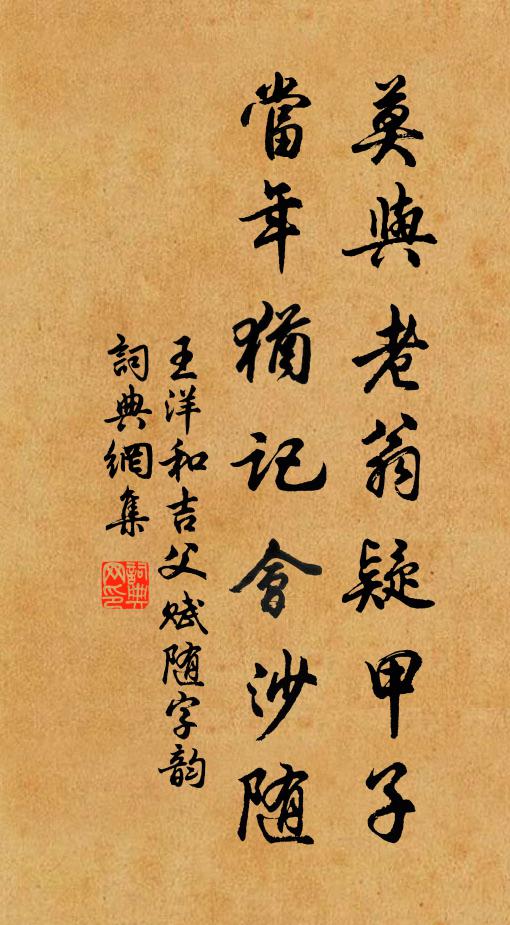 莫與老翁疑甲子
當年猶記會沙随
王洋和吉父賦随字韵
詞典網集
詞典網印